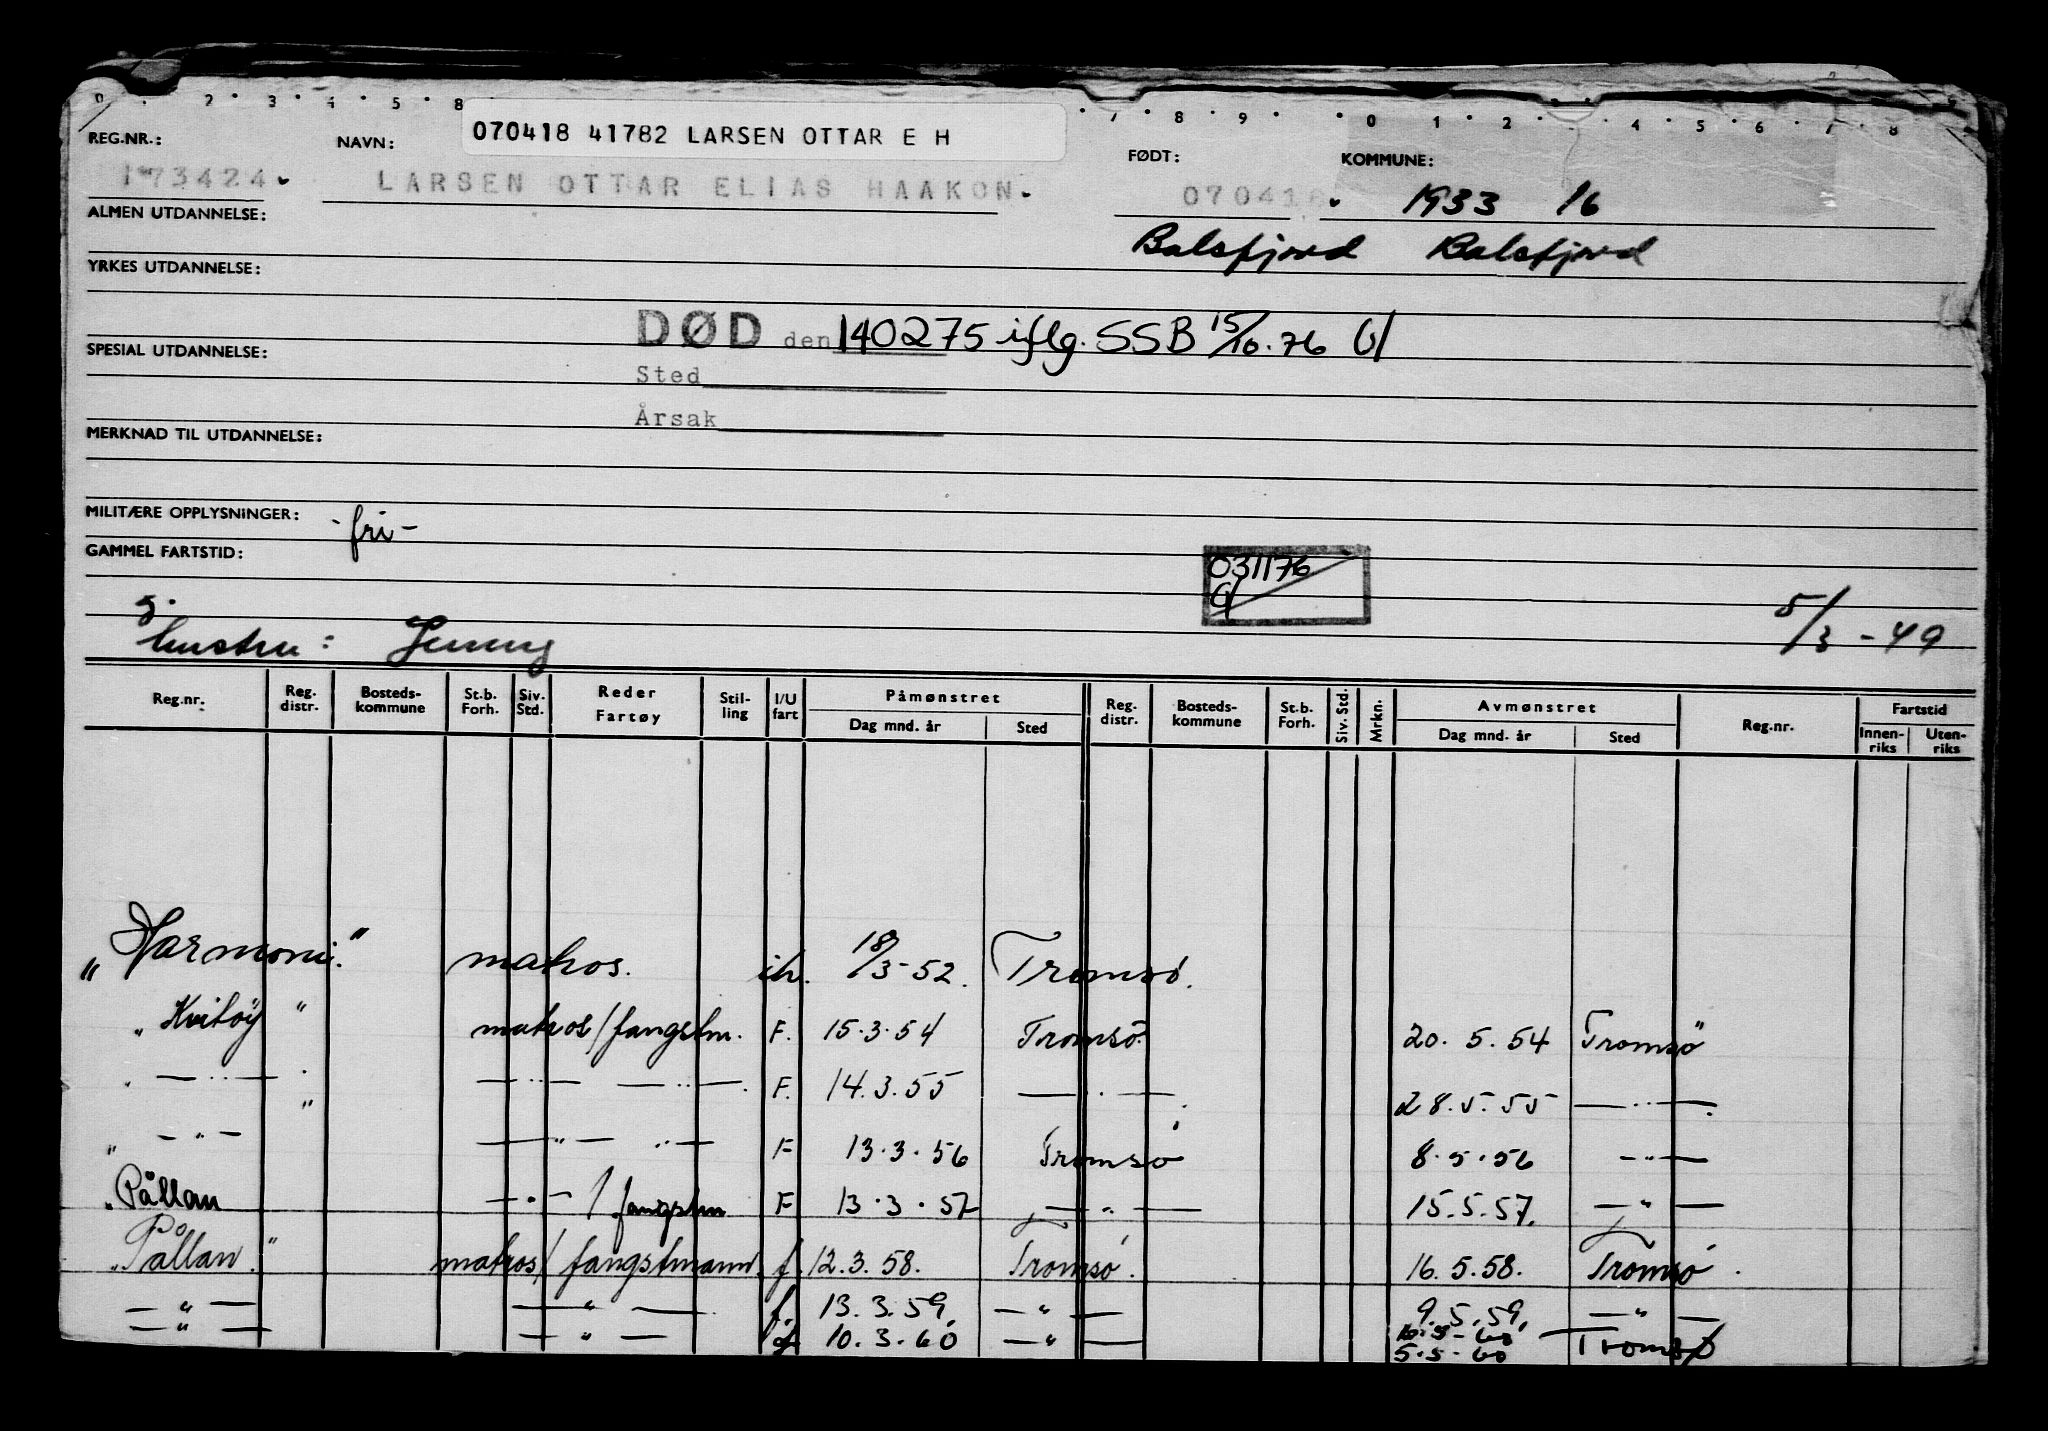 0 . 2 . 3 . 4 . 5 . 8 7 . 8 . 9 . 0 1 . 2 . 4 . 5 . 6 . 7 . 8
070418 41782 LARSEN OTTAR E H
REG.NR.: NAVN: FØDT: KOMMUNE:
173424. LARSEN OTTAR ELIAS HAAKON. 070418. 1933 16
ALMEN UTDANNELSE: Balsfjord Balsfjord
YRKES UTDANNELSE:
DØD den 140275 iflg. SSB 15/10.76
SPESIAL UTDANNELSE:
Sted
Årsak
MERKNAD TIL UTDANNELSE:
MILITÆRE OPPLYSNINGER: -fri-
GAMMEL FARTSTID:
031176
g. 5/3-49
hustru: Jenny
Reg.nr. Reg. distr. Bosteds-kommune St.b. Forh. Siv. Std. Reder Fartøy Stil-ling I/U fart Påmønstret Dag mnd. år Sted Reg. distr. Bosteds-kommune St.b. Forh. Siv. Std. Mrkn. Avmønstret Dag mnd. år Sted Reg.nr. Fartstid Innen-riks Uten-riks
"Harmoni." matros. ih. 18/3-52. Tromsø.
"Kvitöy" matros/fangstm. F. 15.3.54 Tromsö. 20.5.54 Tromsö
" — " — " — " — — " — . F. 14.3.55 — " — . 28.5.55 — " — .
" — " — " — " — " — F 13.3.56 Tromsö 8.5.56 — " —
"Pållan — " — / fangstm F 13.3.57 — " — 15.5.57. — " —
"Pållan." matros/fangstmann. f. 12.3.58. Tromsø. 16.5.58. Tromsø.
— " — — " — — f. 13.3.59. — " — 9.5.59. — " —
— " — — " — f 10.3.60 — " — 10.5-60 Tromsø
5.5-60